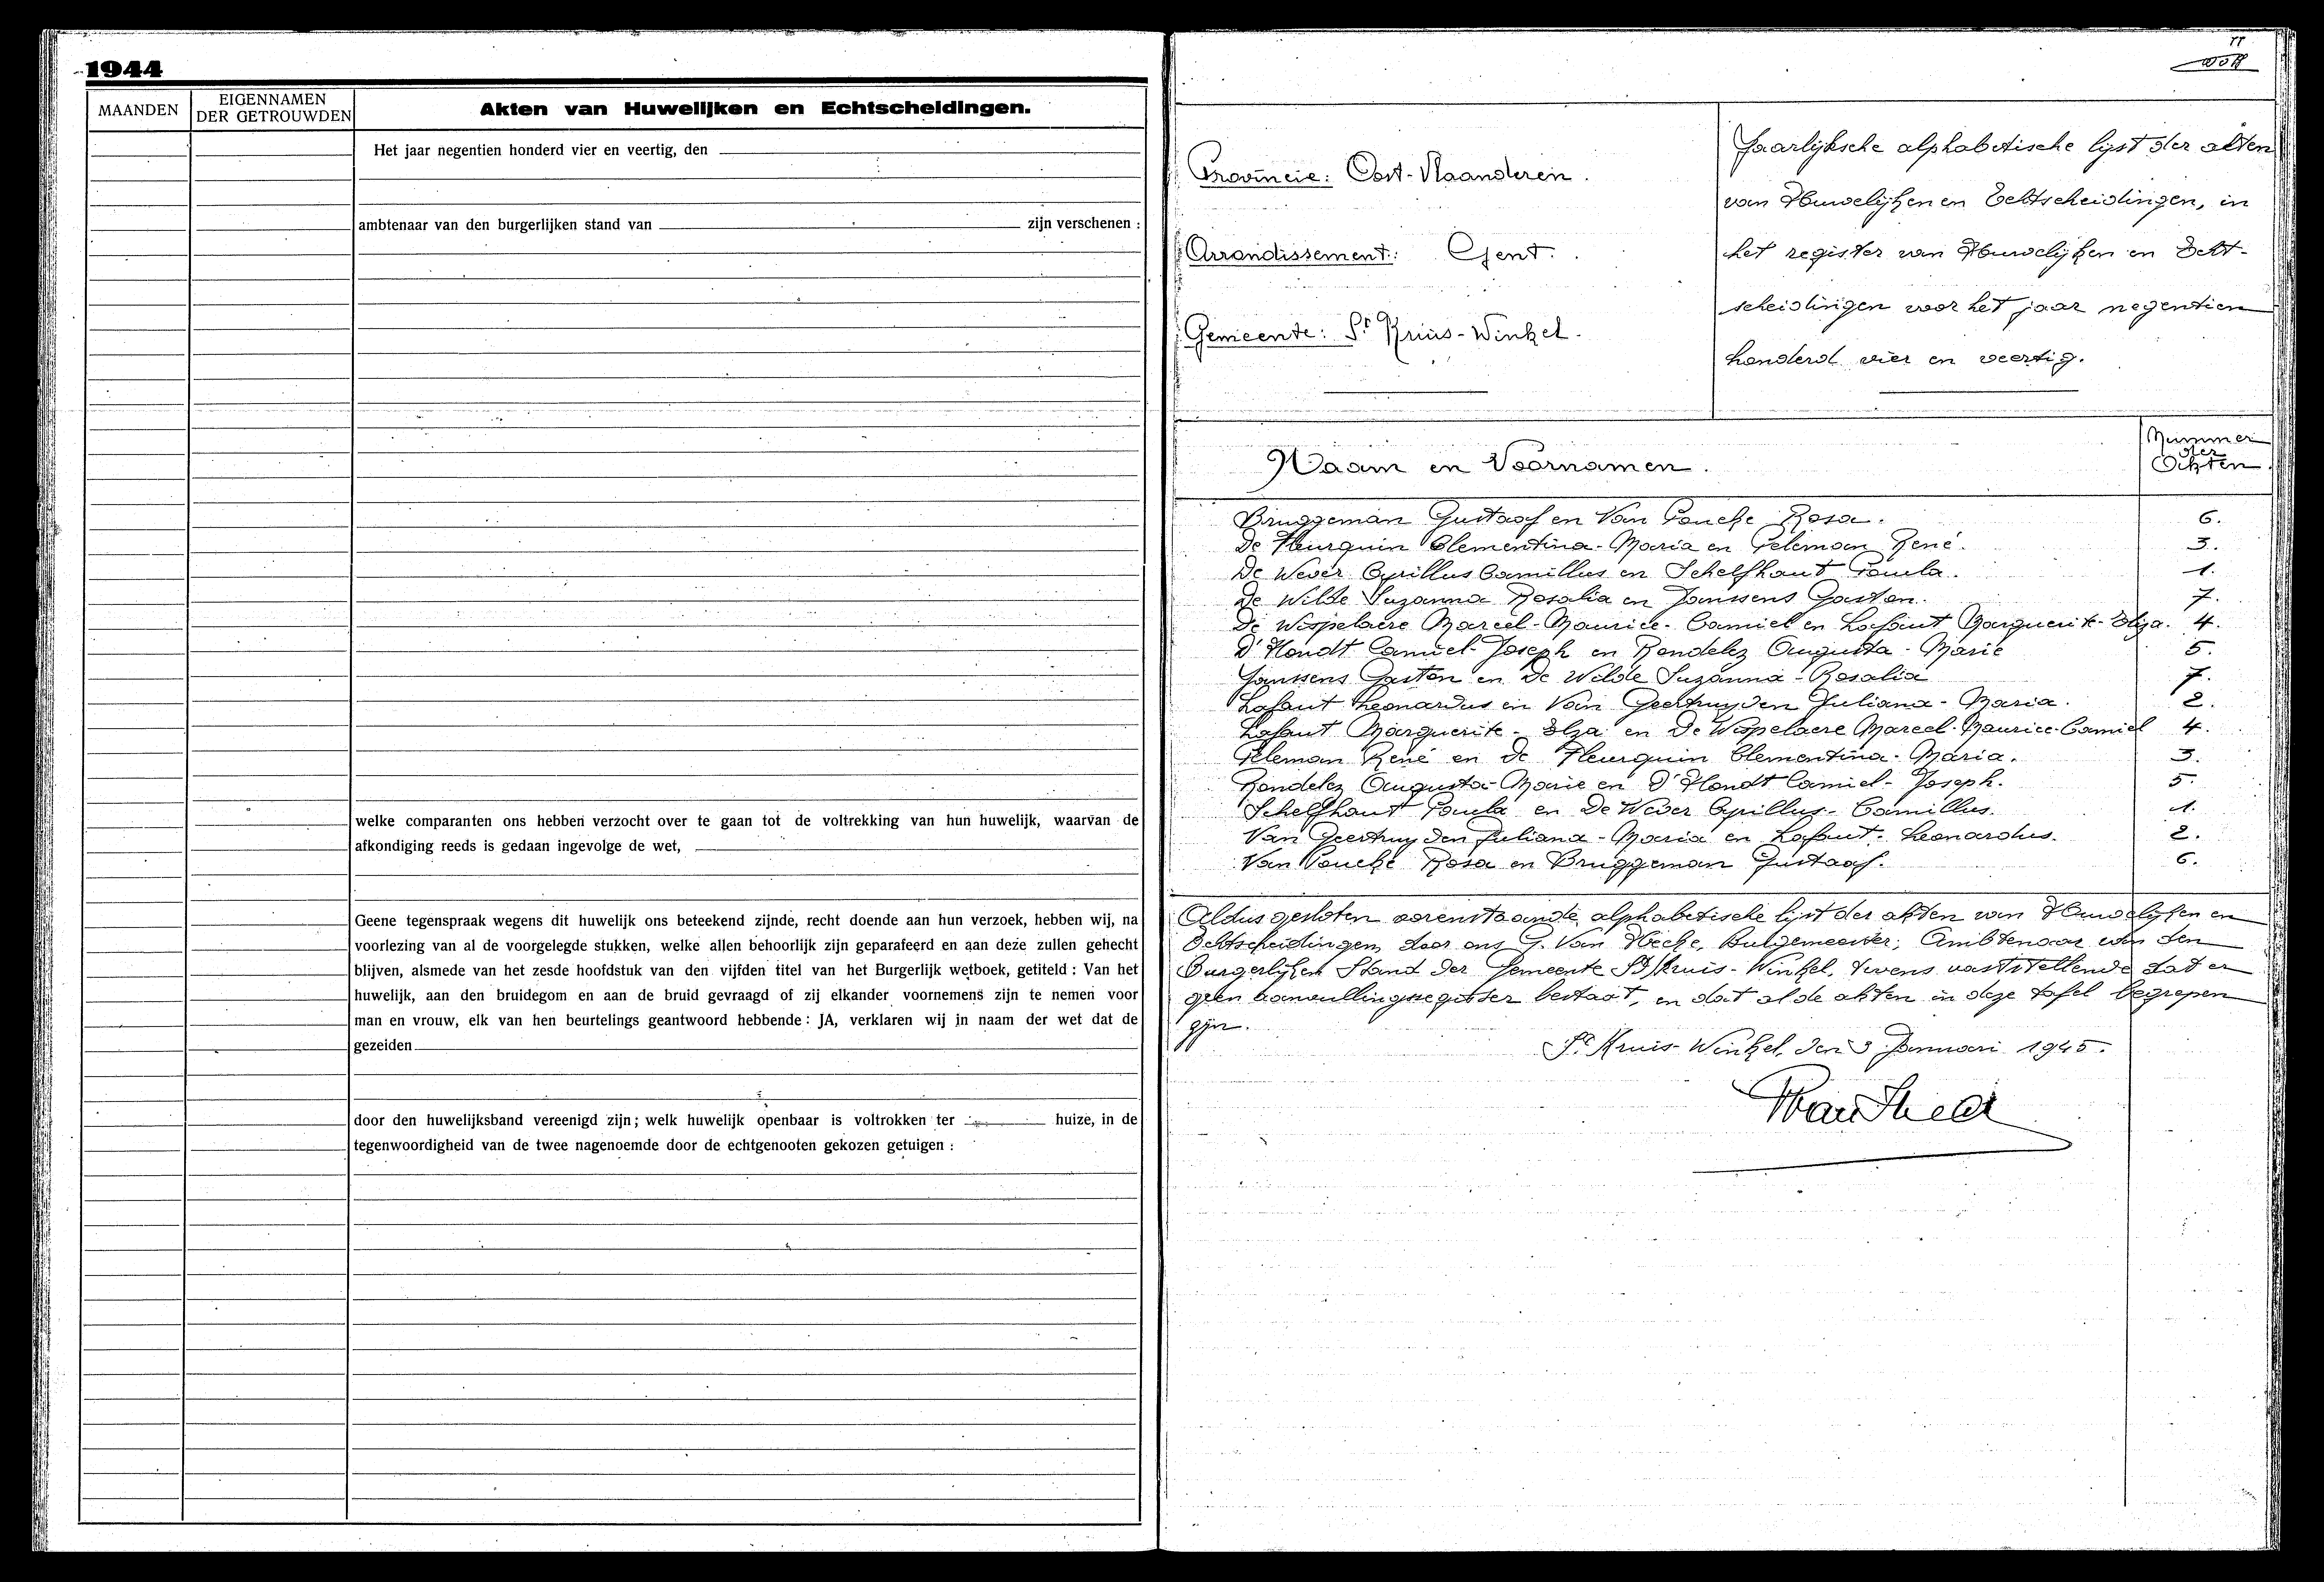 1944
MAANDEN
EIGENNAMEN
DER GETROUWDEN
Akten van Huwelijken en Echtscheidingen.
Het jaar negentien honderd vier en veertig, den
ambtenaar van den burgerlijken stand van zijn verschenen :
welke comparanten ons hebben verzocht over te gaan tot de voltrekking van hun huwelijk, waarvan de
afkondiging reeds is gedaan ingevolge de wet,
Geene tegenspraak wegens dit huwelijk ons beteekend zijnde, recht doende aan hun verzoek, hebben wij, na
voorlezing van al de voorgelegde stukken, welke allen behoorlijk zijn geparafeerd en aan deze zullen gehecht
blijven, alsmede van het zesde hoofdstuk van den vijfden titel van het Burgerlijk wetboek, getiteld : Van het
huwelijk, aan den bruidegom en aan de bruid gevraagd of zij elkander voornemens zijn te nemen voor
man en vrouw, elk van hen beurtelings geantwoord hebbende : JA, verklaren wij in naam der wet dat de
gezeiden
door den huwelijksband vereenigd zijn ; welk huwelijk openbaar is voltrokken ter huize, in de
tegenwoordigheid van de twee nagenoemde door de echtgenooten gekozen getuigen :
Provincie: Oost-Vlaanderen.
Arrondissement: Gent.
Gemeente: St Kruis-Winkel.
Jaarlijksche alphabetische lijst der akten
van Huwelijken en Echtscheidingen, in
het register van Huwelijken en Echt-
scheidingen voor het jaar negentien
honderd vier en veertig.
Naam en Voornamen.
Nummer
der
Akten.
Bruggeman Gustaaf en Van Poucke Rosa. 6.
De Fleurquin Clementina-Maria en Peleman René. 3.
De Wever Cyrillus Camillus en Schelfhout Paula. 1.
De Wilde Suzanna Rosalia en Janssens Gaston. 7.
De Wispelaere Marcel-Maurice-Camiel en Lafaut Marguerite-Elza. 4.
D'Hondt Camiel-Joseph en Rondelez Augusta-Marie 5.
Janssens Gaston en De Wilde Suzanna-Rosalia 7.
Lafaut Leonardus en Van Geertruyden Juliana-Maria. 2.
Lafaut Marguerite-Elza en De Wispelaere Marcel-Maurice-Camiel 4.
Peleman René en De Fleurquin Clementina-Maria. 3.
Rondelez Augusta-Marie en D'Hondt Camiel-Joseph. 5.
Schelfhout Paula en De Wever Cyrillus-Camillus. 1.
Van Geertruyden Juliana-Maria en Lafaut Leonardus. 2.
Van Poucke Rosa en Bruggeman Gustaaf. 6.
Aldus gesloten vorenstaande alphabetische lijst der akten van Huwelijken en
Echtscheidingen, door ons G. Van Hecke, Burgemeester, Ambtenaar van den
Burgerlijken Stand der Gemeente St Kruis-Winkel, tevens vaststellende dat er
geen aanvullingsregister bestaat, en dat al de akten in deze tafel begrepen
zijn.
St Kruis-Winkel, den 3 Januari 1945.